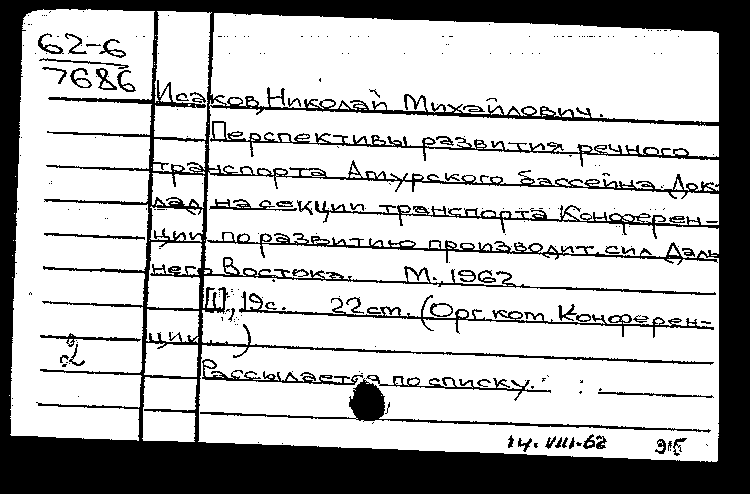 62-6
7686
Исаков, Николай Михайлович.
Перспективы развития речного
транспорта Амурского бассейна. Док-
лад на секции транспорта Конферен-
ции по развитию производит. сил Даль
него Востока. М., 1962.
[1], 19с. 22 ст. (Орг. ком. Конферен-
ции...)
2
Рассылается по списку.
14.VIII-62